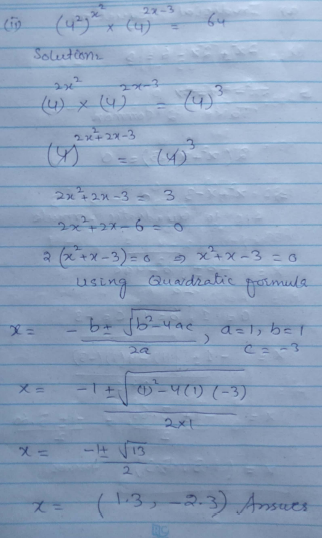 (ii) (4²)^x² × (4)^2x-3 = 64
Solution:
(4)^2x² × (4)^2x-3 = (4)³
(4)^2x²+2x-3 = (4)³
2x²+2x-3 = 3
2x²+2x-6 = 0
2(x²+x-3)=0 ⇒ x²+x-3=0
Using Quadratic formula
x = -b±√b²-4ac / 2a, a=1, b=1
c = -3
x = -1±√(1)²-4(1)(-3) / 2×1
x = -1±√13 / 2
x = (1.3, -2.3) Answer